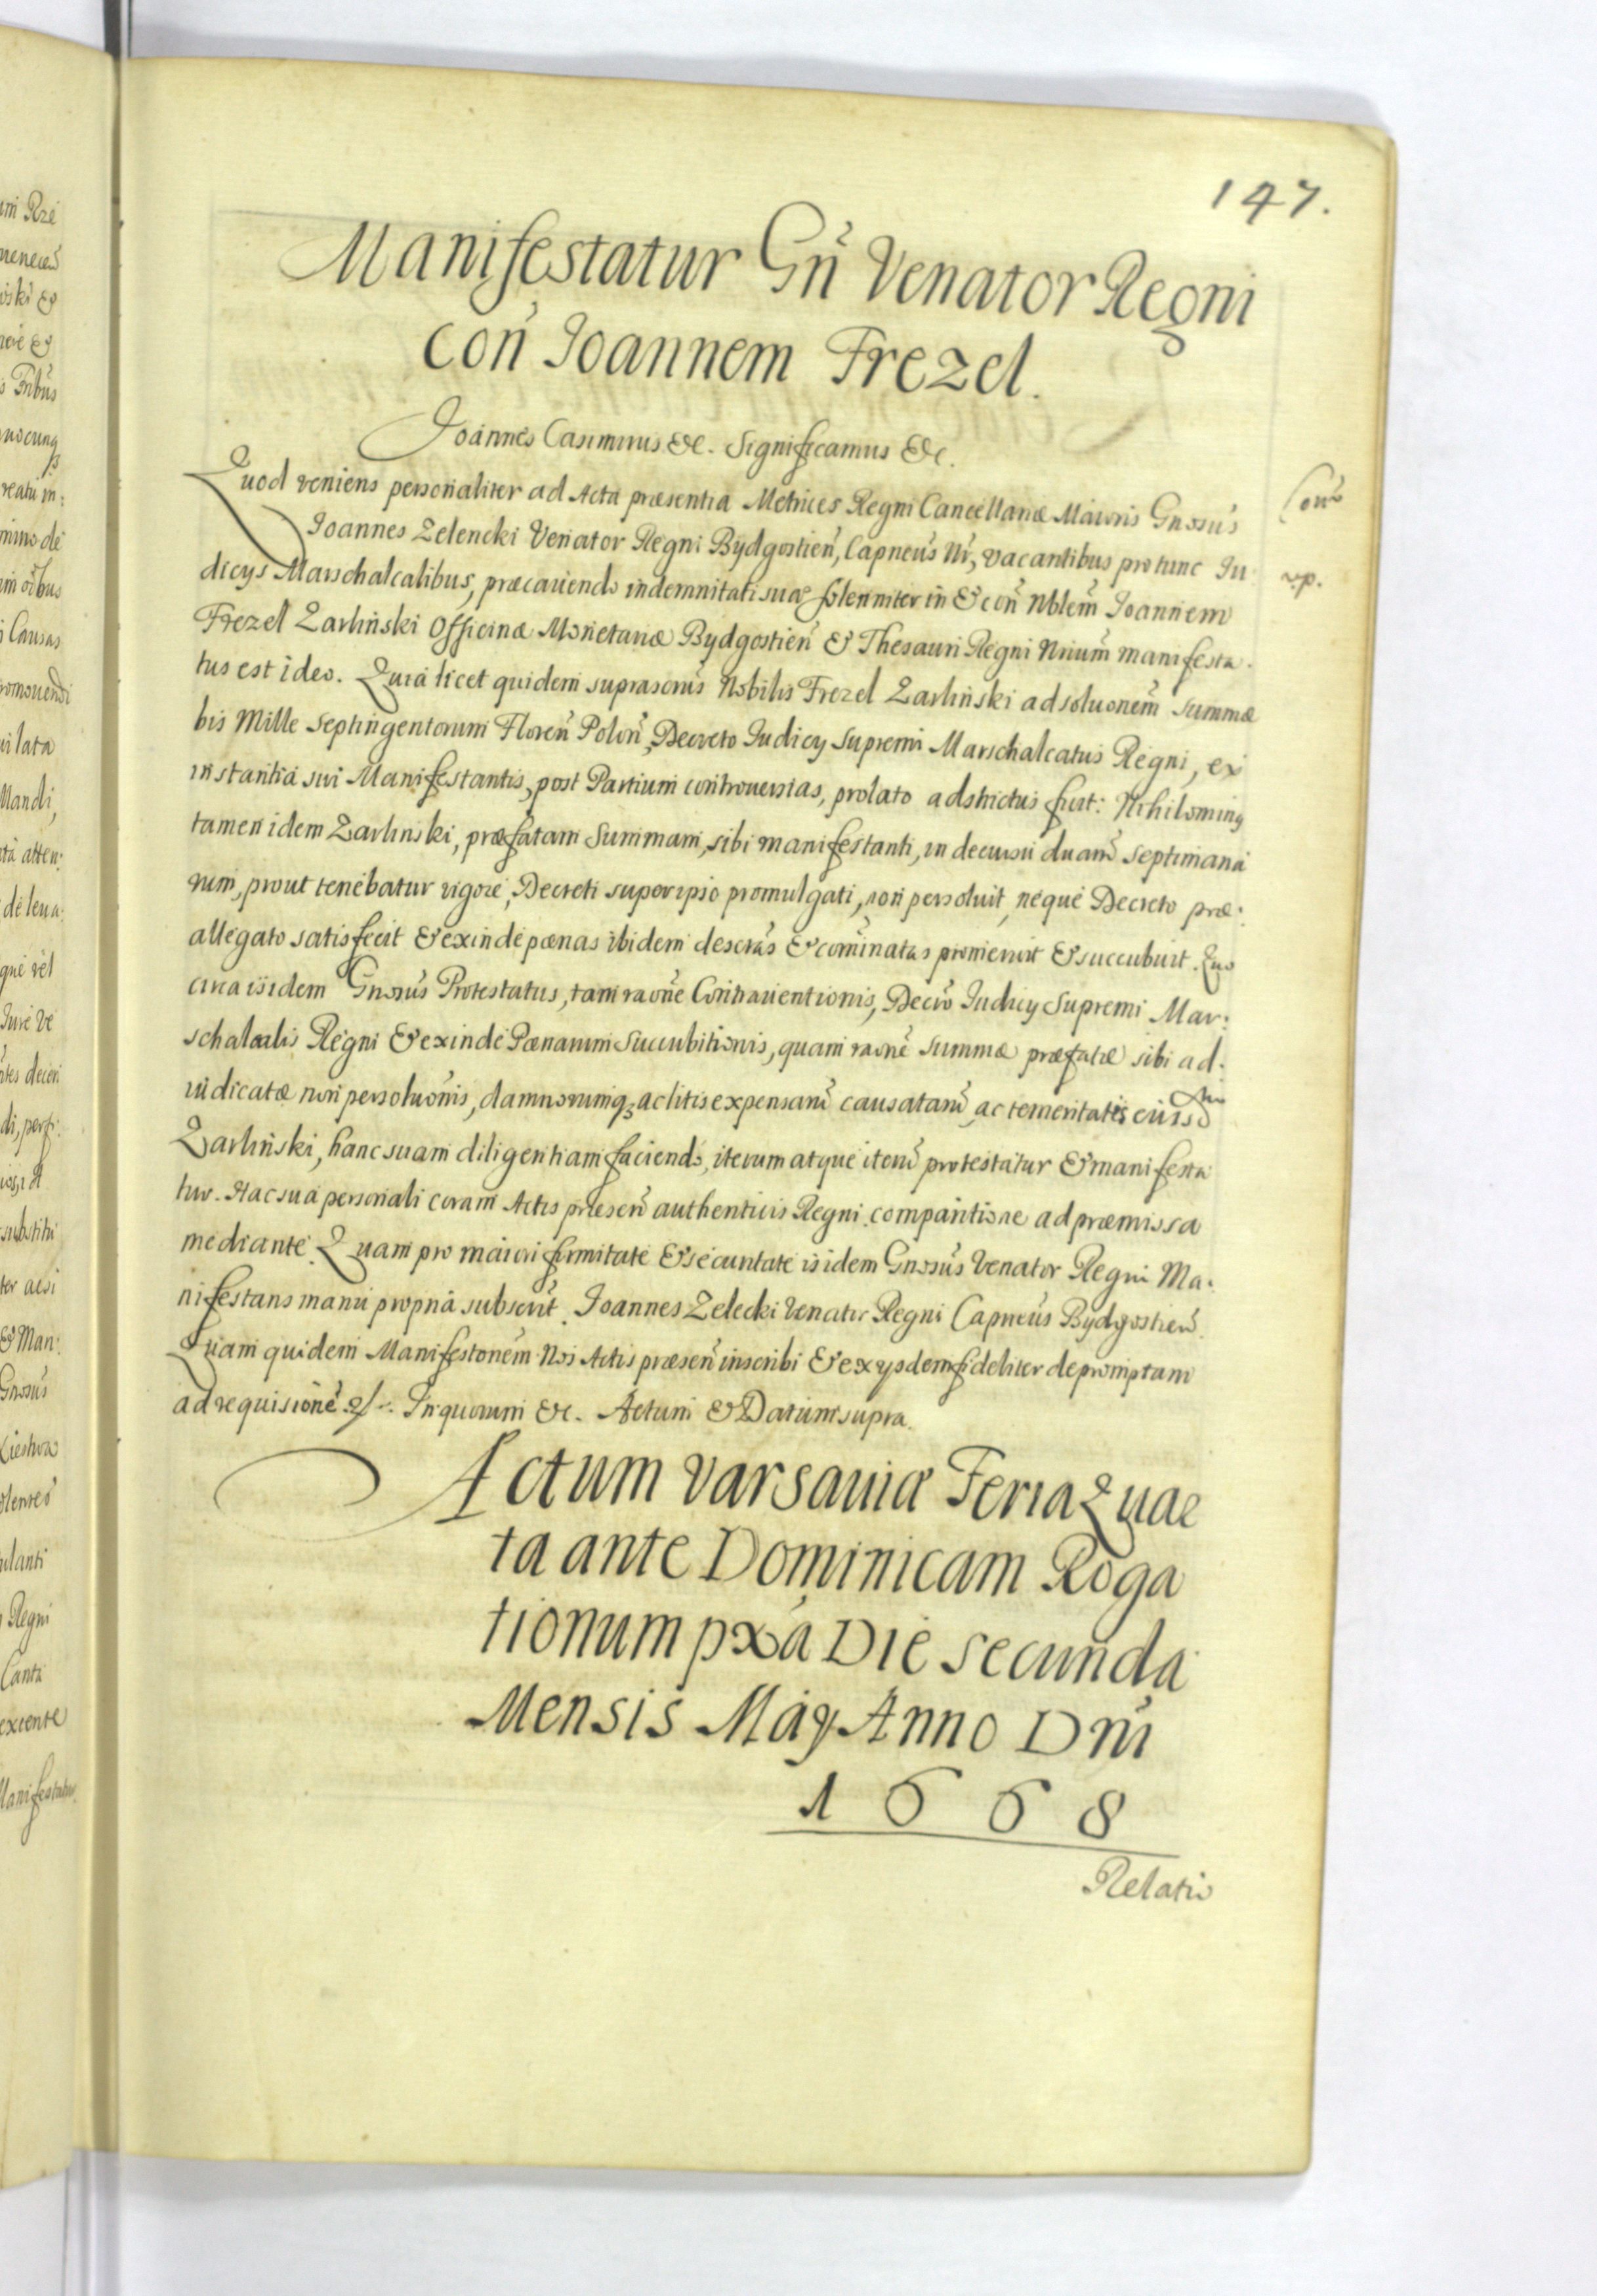 147.
Manifestatur Gn̄ Venator Regni
con̄ Joannem Frezel.
Joannes Casimirus &c. Significamus &c.
Quod veniens personaliter ad Acta præsentia Metrices Regni Cancellariæ Maioris Gnosūs
Joannes Zelencki Venator Regni Bydgostien̄, Capneūs Nr̄, vacantibus pro tunc Ju
dicÿs Marschalcalibus, præcavendo indemnitati suæ solenniter in & con̄ Nblem̄ Joannem
Frezel Zarliński Officinæ Monetariæ Bydgostien̄ & Thesauri Regni Nrium̄ manifesta.
tus est ideo. Quia licet quidem suprascrus̄ Nobilis Frezel Zarliński ad soluonem̄ summæ
bis Mille Septingentorum Floren̄ Polon̄, Decreto Judicÿ Supremi Marschalcatus Regni, ex
instantia sui Manifestantis, post Partium controuersias, prolato adstrictus fuit: Nihilominq
tamen idem Zarlinski, præfatam Summam, sibi manifestanti, in decursu duarū septimana
rum, prout tenebatur vigore, Decreti super ipso promulgati, non persoluit, neque Decreto præ:
allegato satisfecit & exinde pœnas ibidem descrās & com̄inatas promeruit & succubuit. Quo
circa iisdem Gnosūs Protestatus, tam raone Contrauentionis, Decrō Judicÿ Supremi Mar:
schalcalis Regni & exinde Pænarum Succubitionis, quam raonē Summæ præfatæ sibi ad.
iudicatæ non persoluōnis, damnorumq3 ac litis expensarū causatarū, ac temeritatis eiusd
Zarliński, hanc suam diligentiam faciendo, iterum atque iterū protestatur & manifesta
tur. Hac sua personali coram Actis præsen̄ authenticis Regni comparitione ad præmissa
mediante. Quam pro maiori firmitate & securitate isidem Gnosūs Venator Regni Ma.
nifestans manu propria subscrit̄. Joannes Zelecki Venator Regni Capneūs Bydgostien̄.
Quam quidem Manifestonem̄ Nos Actis præsen̄ inscribi & ex ÿsdem fideliter depromptam
ad requisionē. In quorum &c. Actum & Datum supra.
Con̄
rp.
Actum Varsauiæ Feria Quar
ta ante Dominicam Roga
tionum pxa Die Secunda
Mensis Maÿ Anno Dnī
1668
Relatio